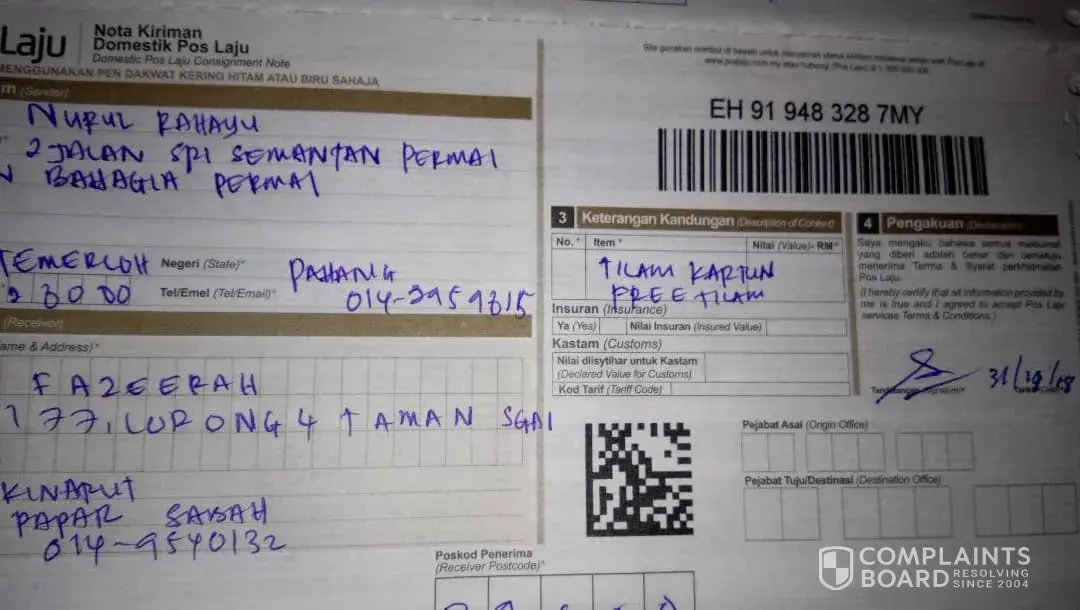 Laju
Nota Kiriman
Domestik Pos Laju
Domestic Pos Laju Consignment Note
MENGGUNAKAN PEN DAKWAT KERING HITAM ATAU BIRU SAHAJA
m (Sender)
NURUL RAHAYU
2 JALAN SRI SEMANTAN PERMAI
BAHAGIA PERMAI
TEMERLOH
Negeri (State)*
PAHANG
28000
Tel/Emel (Tel/Email)*
014-2959815
(Receiver)
ame & Address)*
FAZEERAH
177, LORONG 4 TAMAN SGAI
KINARUT
PAPAR SABAH
014-9540132
Poskod Penerima
(Receiver Postcode)*
EH 91 948 328 7MY
3 Keterangan Kandungan (Description of Content)
No.* Item* Nilai (Value)- RM*
TILAM KARTUN
FREE TILAM
Insuran (Insurance)
Ya (Yes) Nilai Insuran (Insured Value)
Kastam (Customs)
Nilai diisytihar untuk Kastam
(Declared Value for Customs)
Kod Tarif (Tariff Code)
4 Pengakuan (Declaration)
Saya mengaku bahawa semua maklumat
yang diberi adalah benar dan bersetuju
menerima Terma & Syarat perkhidmatan
Pos Laju.
(I hereby certify that all information provided by
me is true and I agreed to accept Pos Laju
services Terms & Conditions.)
31/10/18
Pejabat Asal (Origin Office)
Pejabat Tuju/Destinasi (Destination Office)
COMPLAINTS
BOARD RESOLVING
SINCE 2004